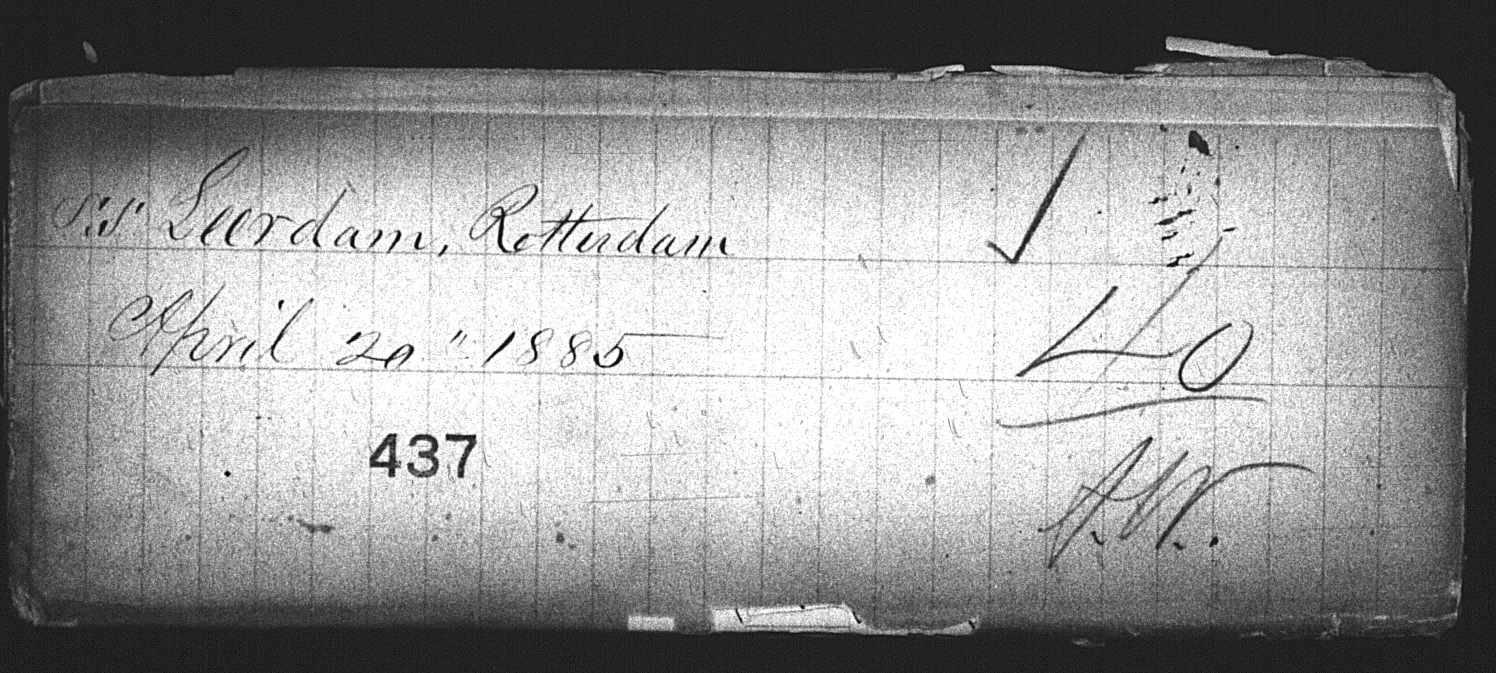 S.S. Leerdam, Rotterdam
April 20" 1885
437
✓
40